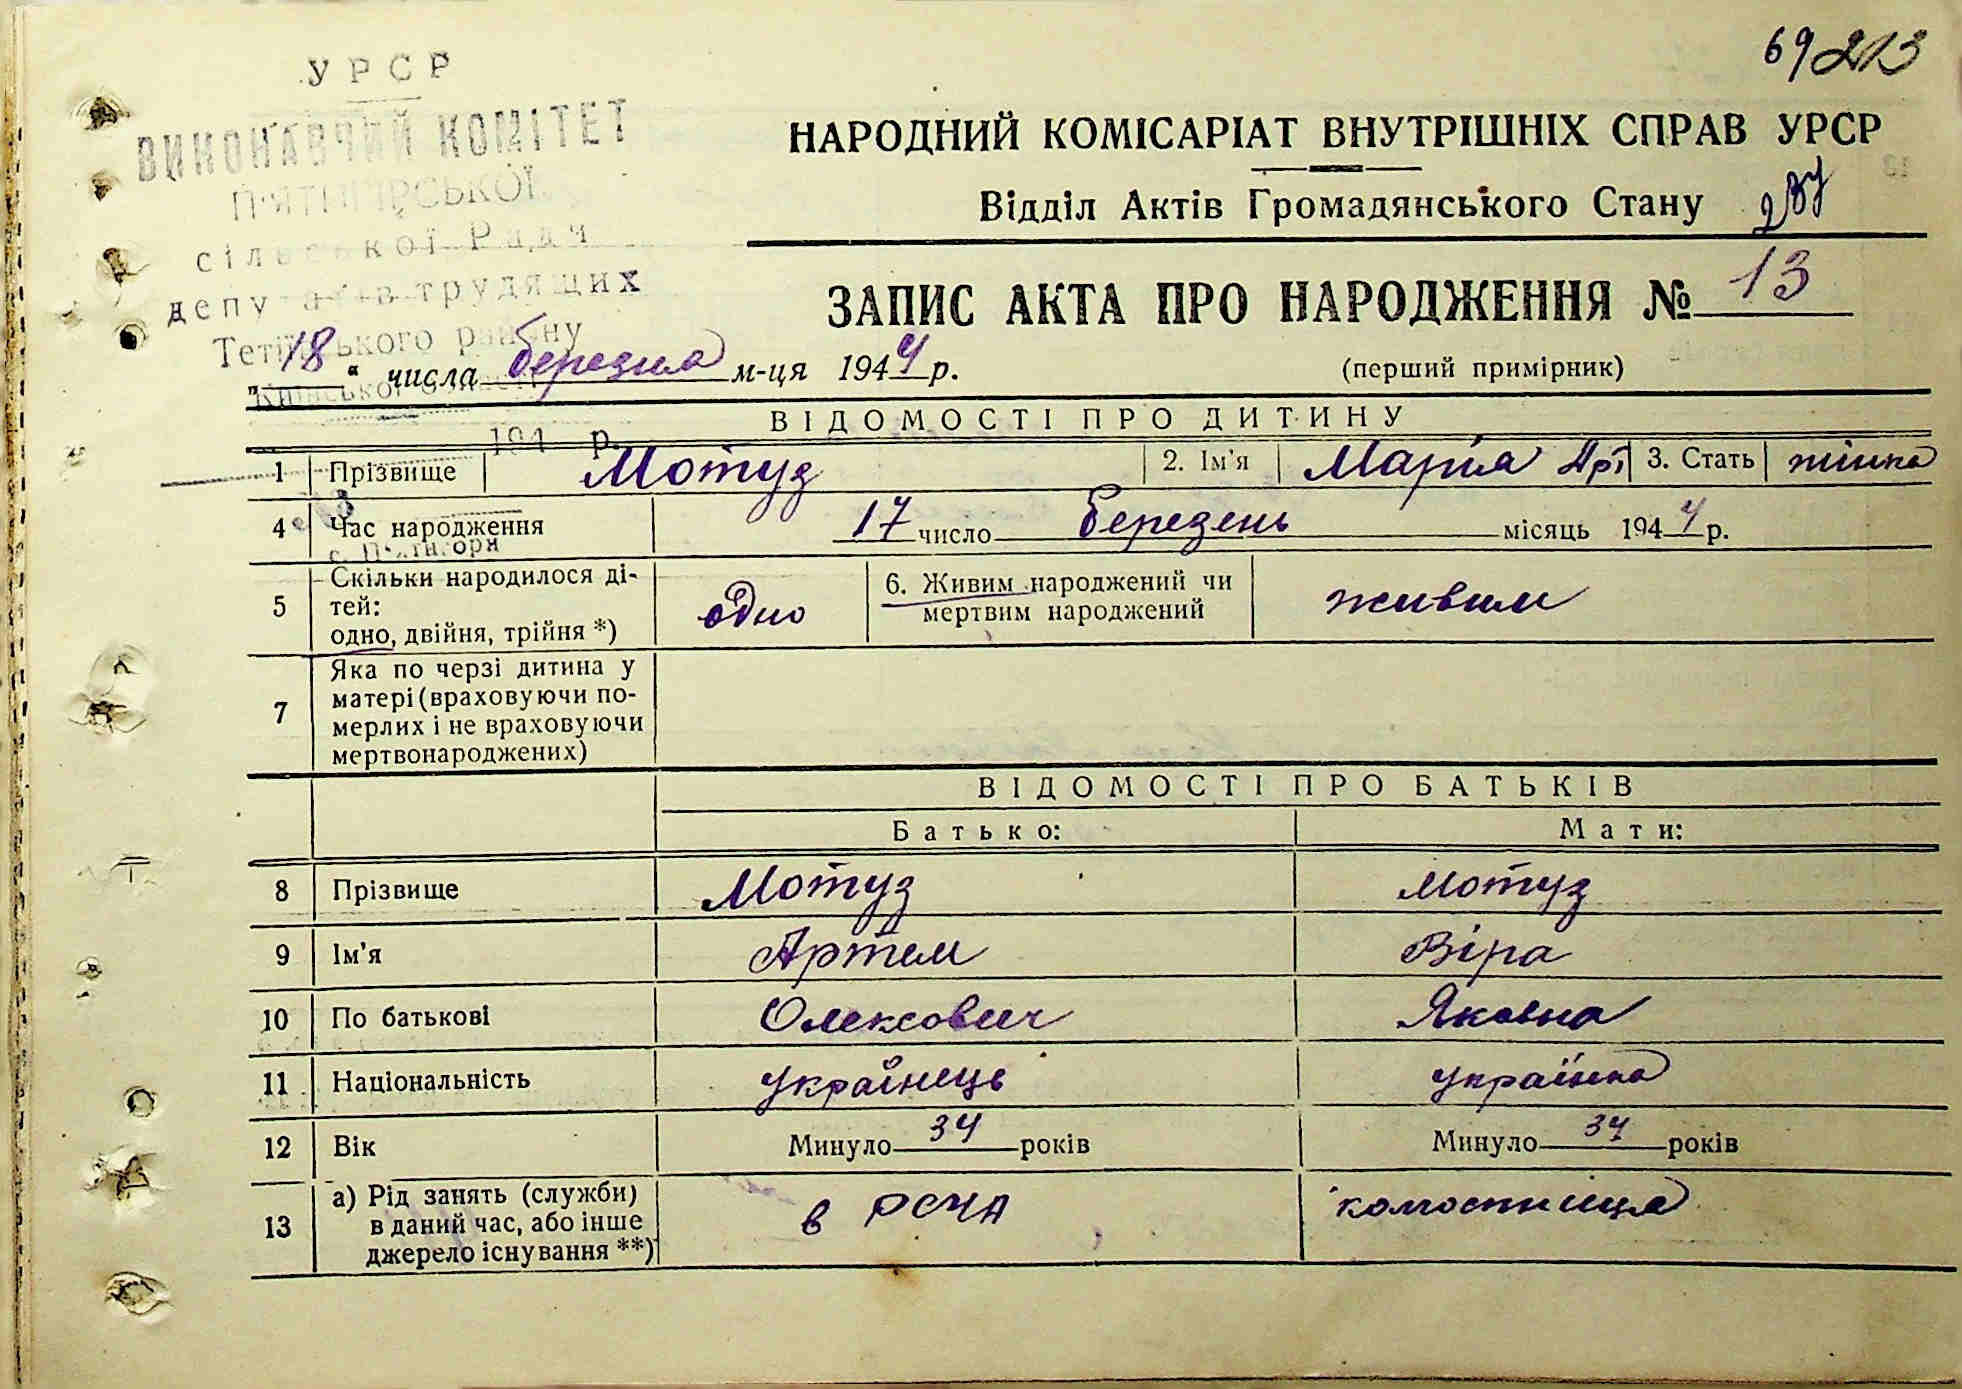 69 213
УРСР
ВИКОНАВЧИЙ КОМІТЕТ
П'ЯТИГІРСЬКОЇ
сільської Ради
депутатів трудящих
Тетіївського району
Київської області
194 р.
с. П'ятигори
НАРОДНИЙ КОМІСАРІАТ ВНУТРІШНІХ СПРАВ УРСР
Відділ Актів Громадянського Стану
ЗАПИС АКТА ПРО НАРОДЖЕННЯ № 13
„18“ числа березня м-ця 1944 р.
(перший примірник)
ВІДОМОСТІ ПРО ДИТИНУ
1 Прізвище Мотуз 2. Ім'я Марія Арт 3. Стать жінка
4 Час народження 17 число березень місяць 1944 р.
5 Скільки народилося ді-
тей:
одно, двійня, трійня *) одно 6. Живим народжений чи
мертвим народжений живим
7 Яка по черзі дитина у
матері (враховуючи по-
мерлих і не враховуючи
мертвонароджених)
ВІДОМОСТІ ПРО БАТЬКІВ
Батько: Мати:
8 Прізвище Мотуз Мотуз
9 Ім'я Артем Віра
10 По батькові Олексович Яковна
11 Національність українець українка
12 Вік Минуло 34 років Минуло 34 років
13 а) Рід занять (служби)
в даний час, або інше
джерело існування **) в РСЧА колгоспниця